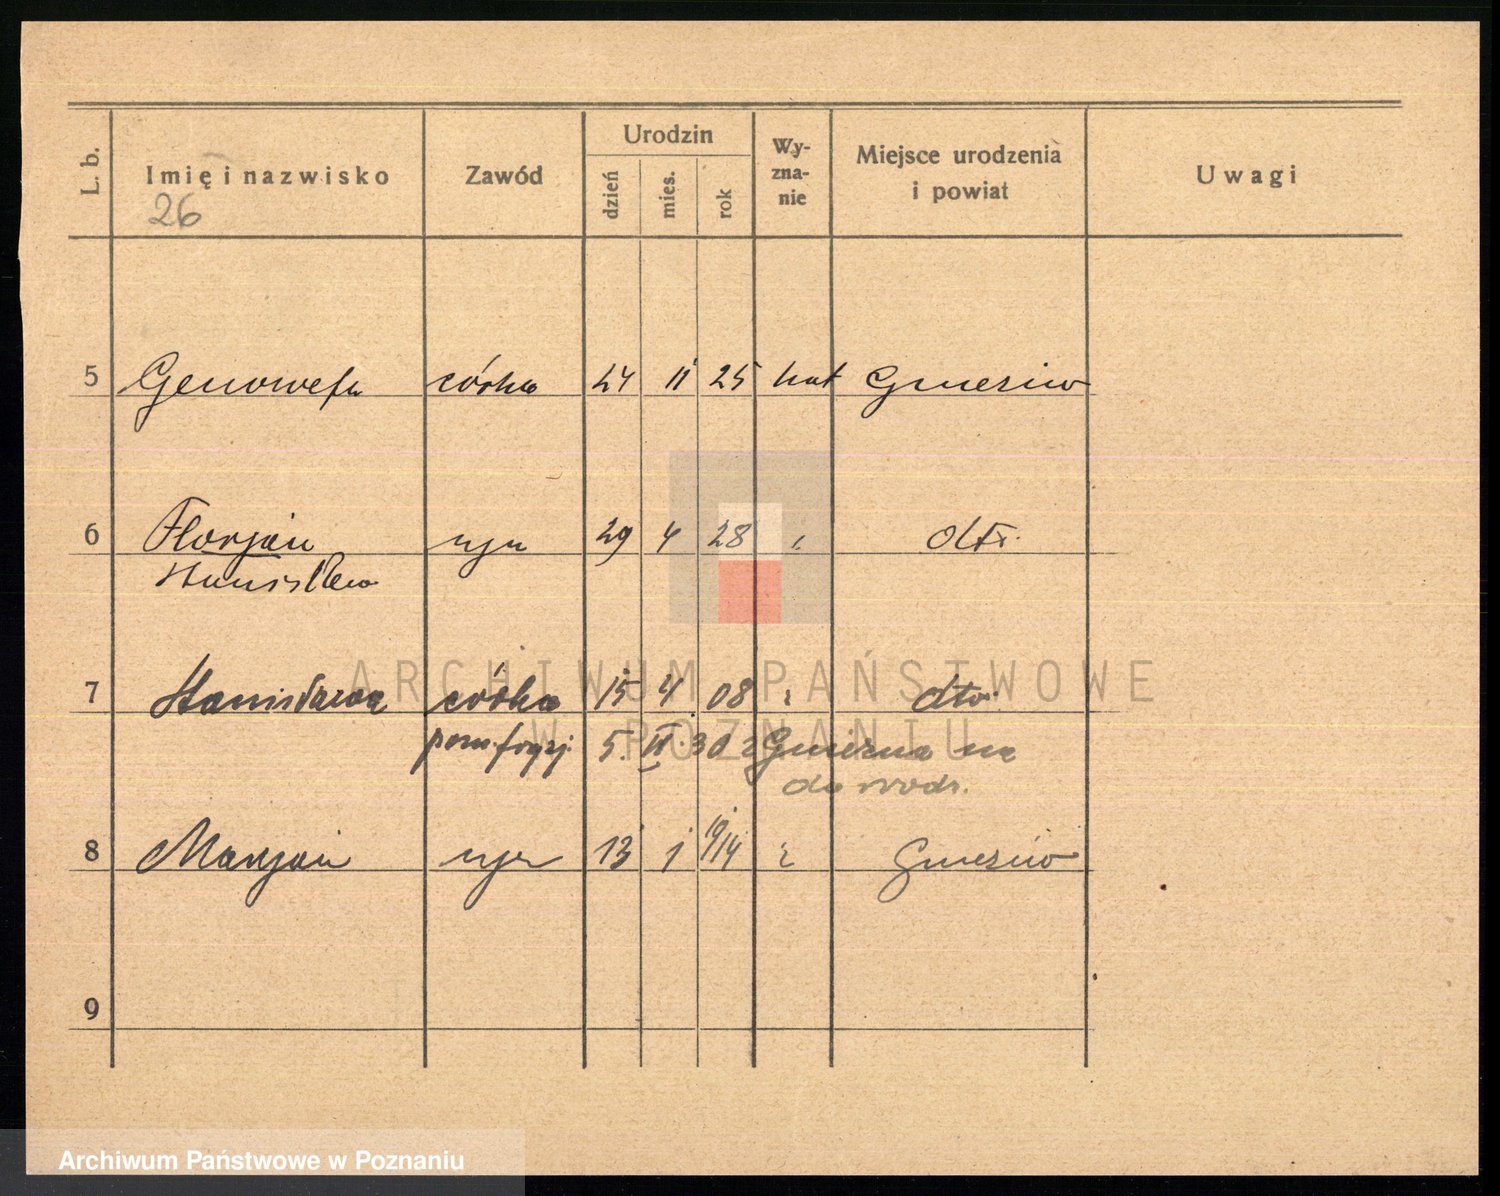 L. b. Imię i nazwisko Zawód Urodzin Wy-zna-nie Miejsce urodzenia i powiat Uwagi
dzień mies. rok
26
5 Genowefa córka 24 11 25 kat Gniezno
6 Florjan syn 29 4 28 dto.
Stanisław
7 Stanisława córka 15 4 08 dto
pom. fryzj. 5. II. 30 z Gniezna
do rodz.
8 Marjan syn 13 1 19/14 Gniezno
9
ARCHIWUM PAŃSTWOWE
W POZNANIU
Archiwum Państwowe w Poznaniu